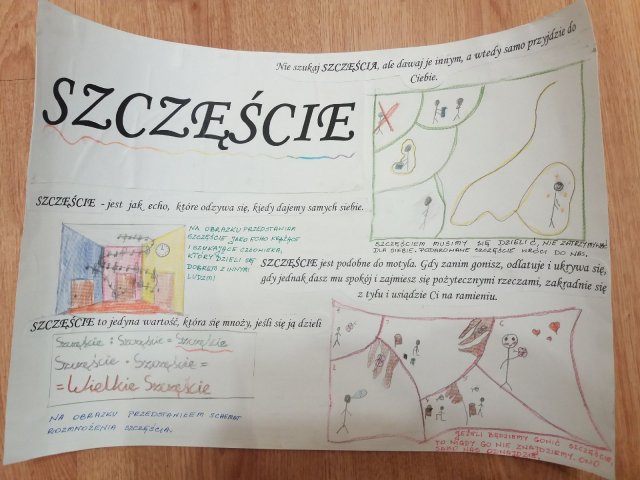 Nie szukaj SZCZĘŚCIA, ale dawaj je innym, a wtedy samo przyjdzie do
Ciebie.
SZCZĘŚCIE
SZCZĘŚCIEM MUSIMY SIĘ DZIELIĆ, NIE ZATRZYMYWAĆ
DLA SIEBIE. PODAROWANE SZCZĘŚCIE WRÓCI DO NAS.
SZCZĘŚCIE - jest jak echo, które odzywa się, kiedy dajemy samych siebie.
NA OBRAZKU PRZEDSTAWIŁAM
SZCZĘŚCIE JAKO ECHO KRĄŻĄCE
I SZUKAJĄCE CZŁOWIEKA,
KTÓRY DZIELI SIĘ
DOBREM Z INNYMI
LUDŹMI
SZCZĘŚCIE jest podobne do motyla. Gdy zanim gonisz, odlatuje i ukrywa się,
gdy jednak dasz mu spokój i zajmiesz się pożytecznymi rzeczami, zakradnie się
z tyłu i usiądzie Ci na ramieniu.
SZCZĘŚCIE to jedyna wartość, która się mnoży, jeśli się ją dzieli
Szczęście : Szczęście = Szczęście
Szczęście · Szczęście =
= Wielkie Szczęście
NA OBRAZKU PRZEDSTAWIŁEM SCHEMAT
ROZMNOŻENIA SZCZĘŚCIA.
JEŻELI BĘDZIEMY GONIĆ SZCZĘŚCIE,
TO NIGDY GO NIE ZNAJDZIEMY. ONO
SAMO NAS ODNAJDZIE